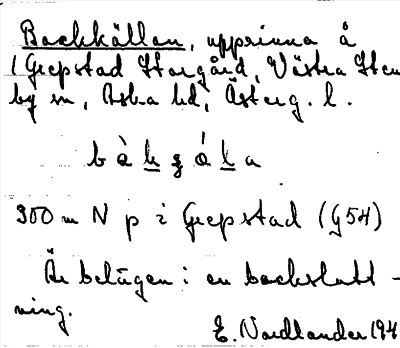 Backkällan, upprinna å
1 Grepstad Storgård, Västra Sten
by sn, Aska hd, Österg. l.
300 m N p i Grepstad (G54)
Är belägen i en backslutt-
ning.
E. Nordlander 194